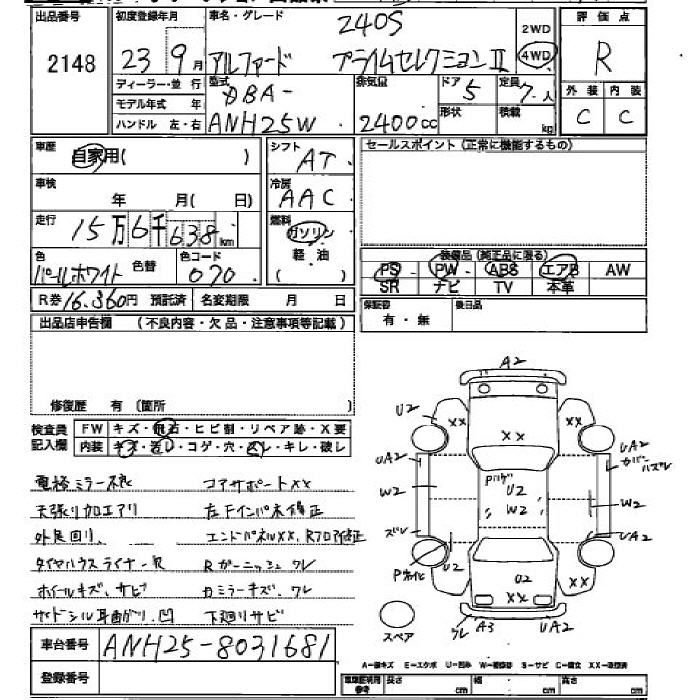 出品番号
2148
初度登録年月
23 9月
車名・グレード
240S
アルファード プライムセレクションⅡ
2WD
4WD
評価点
R
外装 内装
C C
ディーラー・並行
モデル年式 年
ハンドル 左・右
型式
DBA-
ANH25W
排気量
2400cc
ドア
5
形状
定員
7人
積載
kg
車歴
自家用( )
車検
年 月( 日)
走行
15万6千638km
色
パールホワイト
色替
色コード
070
シフト
AT
冷房
AAC
燃料
ガソリン
軽油
( )
セールスポイント (正常に機能するもの)
装備品 (純正品に限る)
PS PW ABS エアB AW
SR ナビ TV 本革
保証書
有・無
後日品
R券 16,360円 預託済
名変期限 月 日
出品店申告欄 (不良内容・欠品・注意事項等記載)
修復歴 有 (箇所
検査員
記入欄
FW キズ・飛石・ヒビ割・リペア跡・X要
内装 キズ・汚レ・コゲ・穴・スレ・キレ・破レ
コアサポートXX
天張り加工アリ
左Fインパネ修正
外足回リ
エンドパネルXX、Rフロア修正
タイヤハウスライナー欠
Rガーニッシュワレ
ホイールキズ、サビ
カミラーキズ、ワレ
サイドシル耳曲がり、凹
下廻りサビ
車台番号
ANH25-8031681
登録番号
A2
U2
XX
XX
XX
UA2
UA2
カバーハズレ
W2
Pハゲ
U2
W2
W2
ズレ
UA2
U2
U2
XX
XX
XX
ワレ
A3
UA2
スペア
A-線キズ E-エクボ U-凹み W-補修跡 S-サビ C-腐食 XX-取替済
車庫証明用
参考
長さ cm
幅 cm
高さ cm